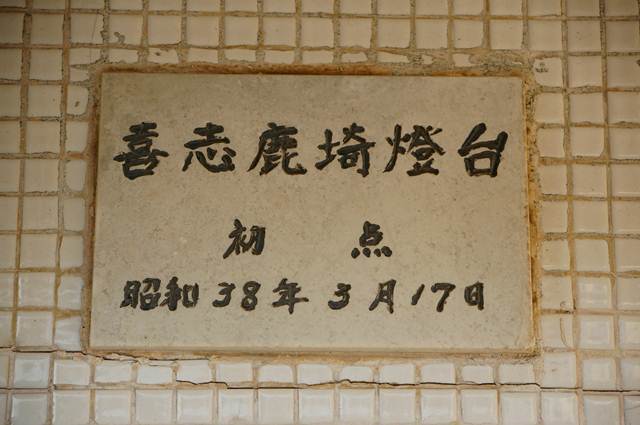 喜志鹿埼燈台
初 点
昭和38年3月17日